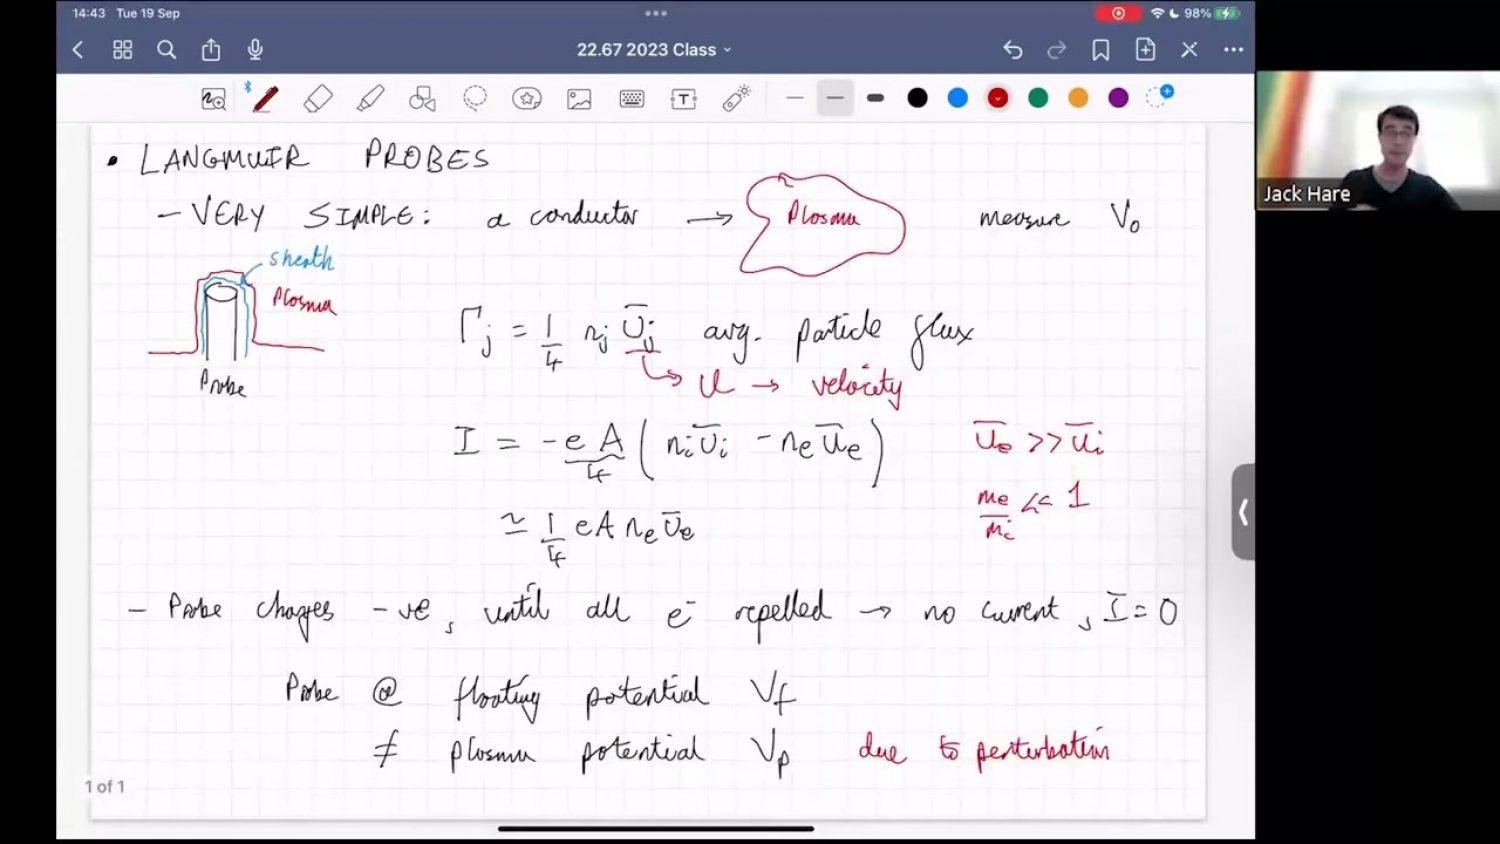 14:43 Tue 19 Sep
98%
22.67 2023 Class
• LANGMUIR PROBES
- VERY SIMPLE: a conductor → Plasma measure V₀
sheath
Plasma
Probe
Γⱼ = 1/4 nⱼ Ūⱼ avg. particle flux
↳ U → velocity
I = -eA/4 (nᵢŪᵢ - nₑŪₑ) Ūₑ >> Ūᵢ
≃ 1/4 eA nₑŪₑ mₑ/mᵢ << 1
- Probe charges -ve, until all e⁻ repelled → no current, I = 0
Probe @ floating potential V_f
≠ plasma potential V_p due to perturbation
1 of 1
T
Jack Hare